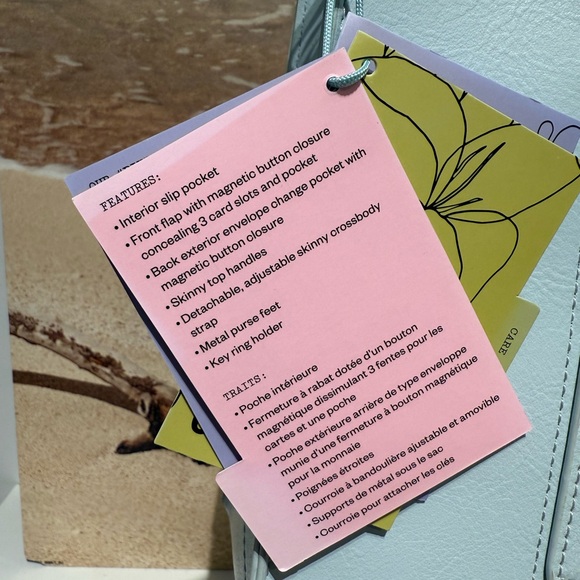 FEATURES:
• Interior slip pocket
• Front flap with magnetic button closure
concealing 3 card slots and pocket
• Back exterior envelope change pocket with
magnetic button closure
• Skinny top handles
• Detachable, adjustable skinny crossbody
strap
• Metal purse feet
• Key ring holder
TRAITS:
• Poche intérieure
• Fermeture à rabat dotée d'un bouton
magnétique dissimulant 3 fentes pour les
cartes et une poche
• Poche extérieure arrière de type enveloppe
munie d'une fermeture à bouton magnétique
pour la monnaie
• Poignées étroites
• Courroie à bandoulière ajustable et amovible
• Supports de métal sous le sac
• Courroie pour attacher les clés
CARE